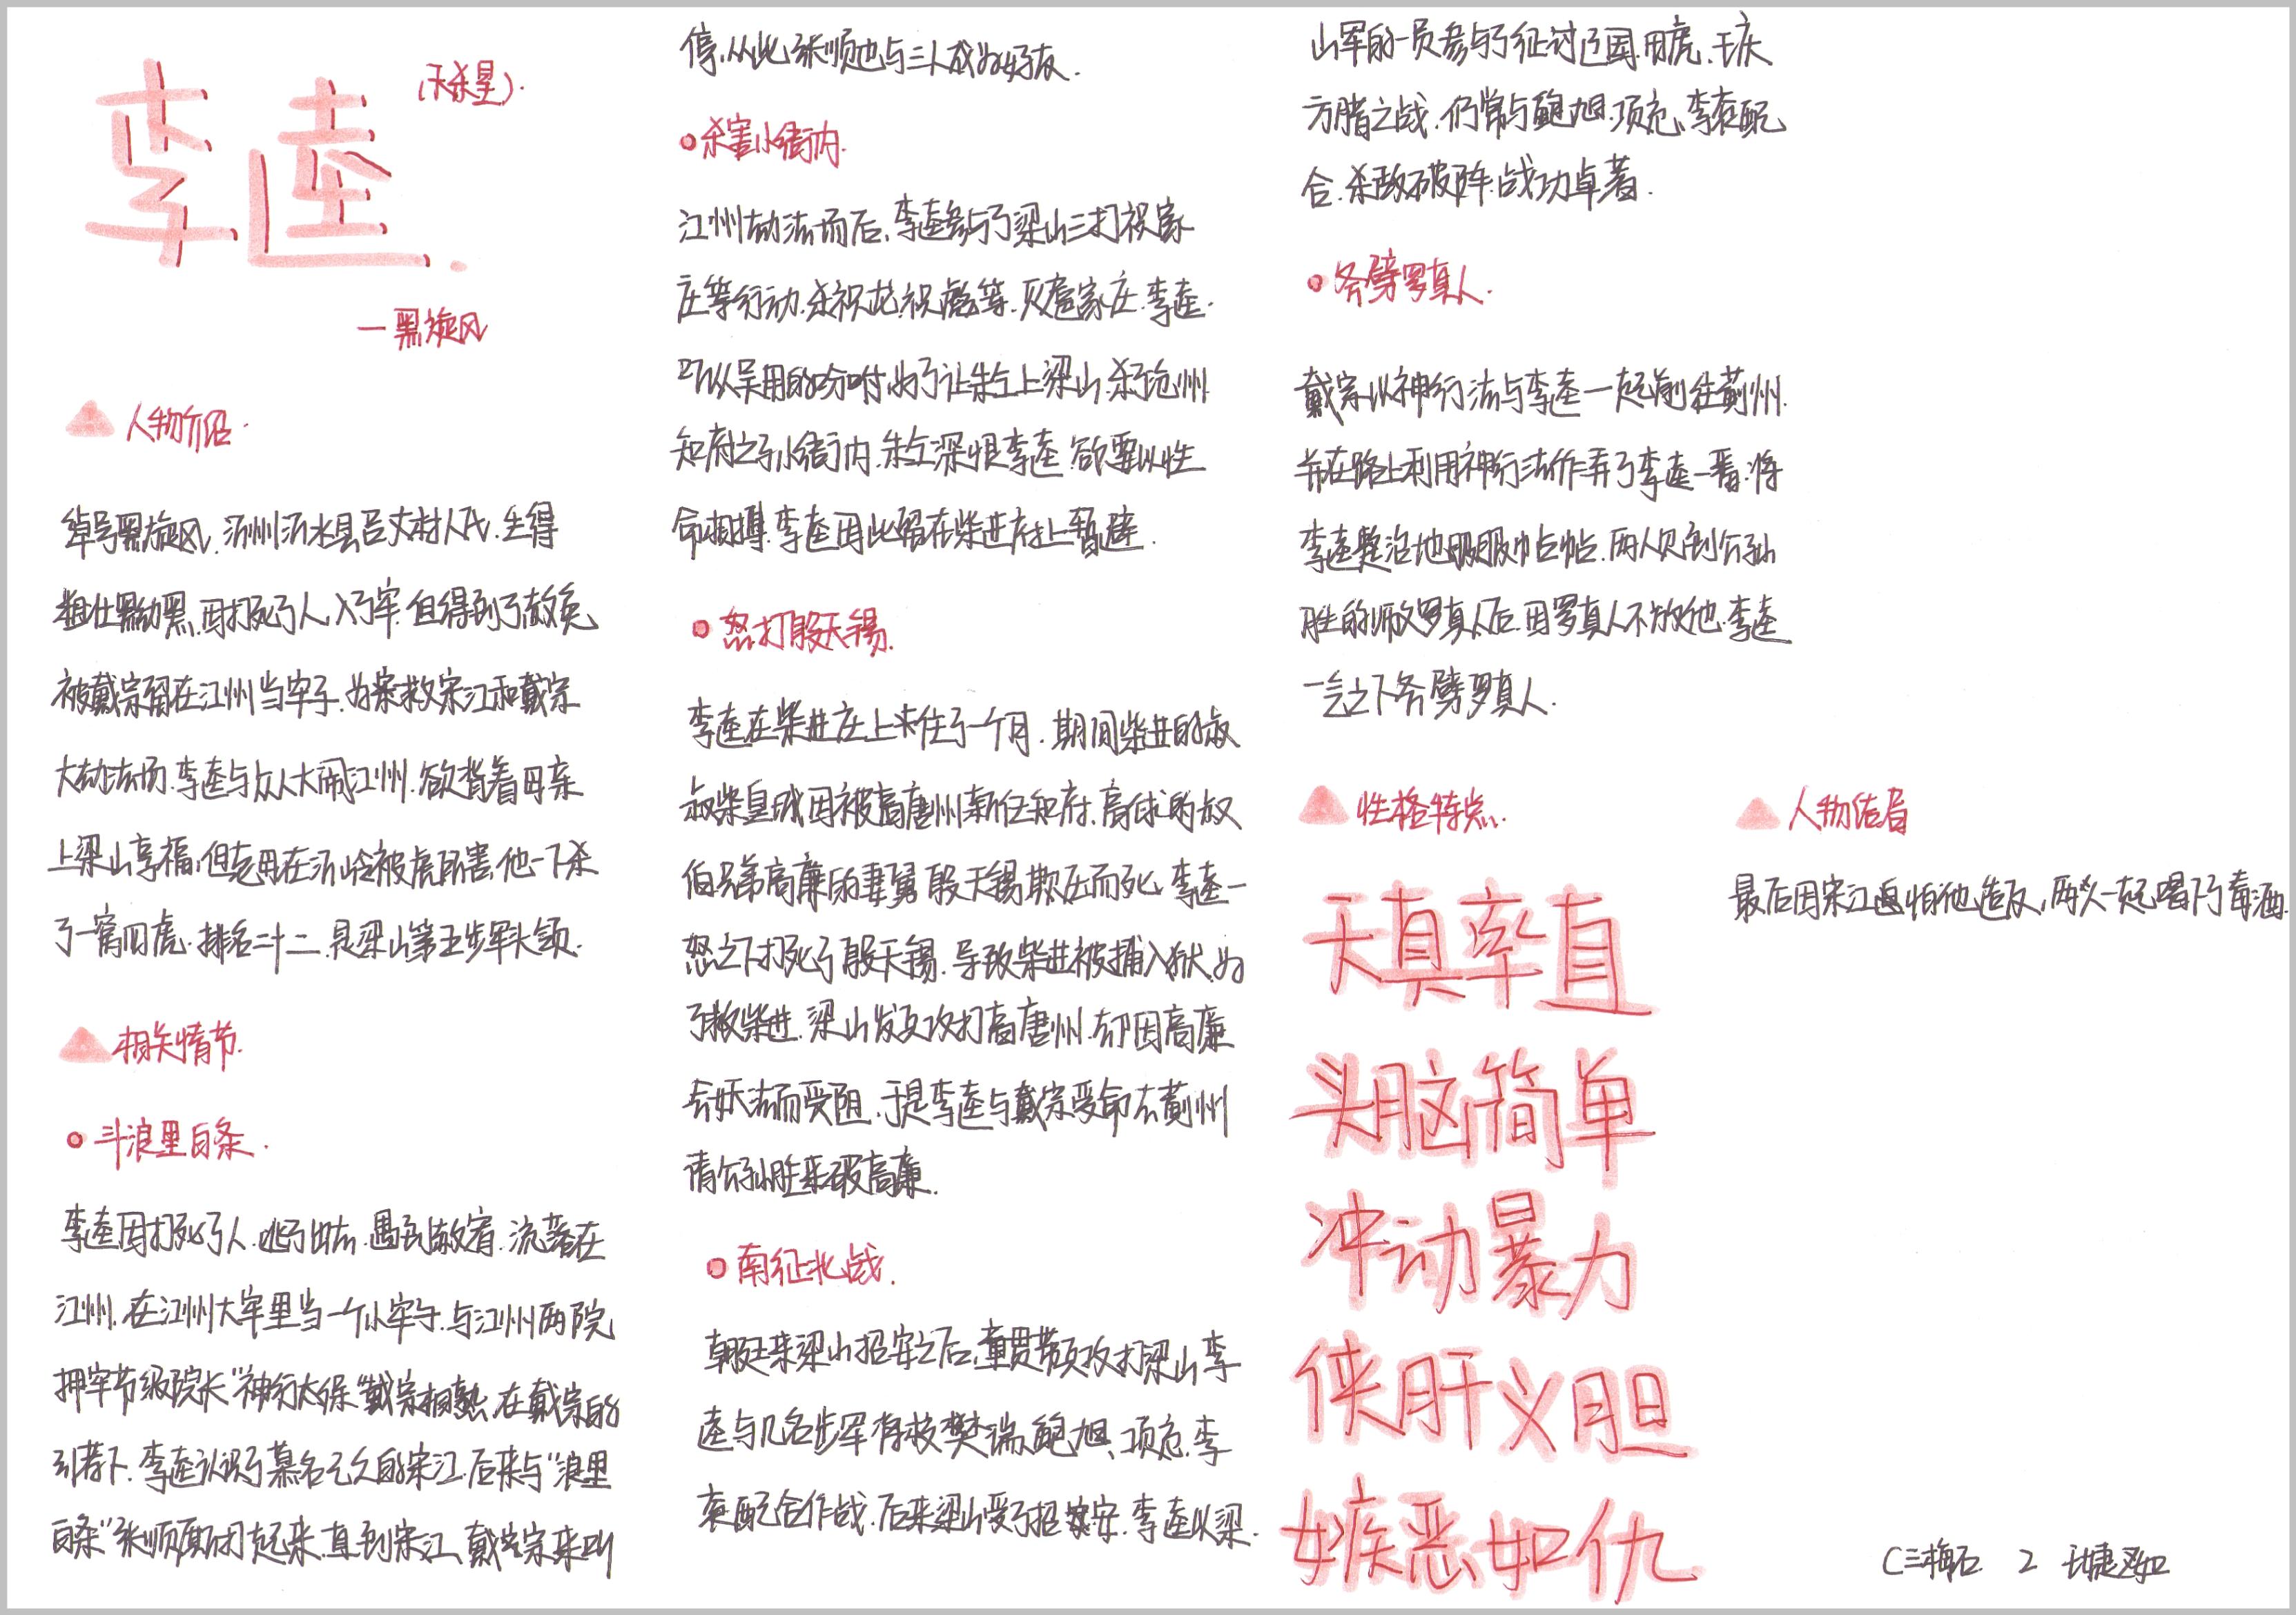 李逵
(天杀星).
一黑旋风
人物介绍.
绰号黑旋风.沂州沂水县百丈村人氏.生得
粗壮黝黑.因打死了人.入了牢.但得到了赦免
被戴宗留在江州当牢子.为案救宋江和戴宗
大劫法场.李逵与众人大闹江州.欲背着母亲
上梁山享福.但老母在沂岭被虎所害.他一下杀
了一窝四虎.排名二十二.是梁山第五步军头领.
相关情节.
斗浪里白条.
李逵因打死了人.逃了出去.遇到赦宥.流落在
江州.在江州大牢里当一个小牢子.与江州两院
押牢节级院长“神行太保”戴宗相熟.在戴宗的
引荐下.李逵认识了慕名已久的宋江.后来与“浪里
白条”张顺厮闭起来.直到宋江、戴宗来叫
停.从此.张顺也与三人成为好友.
杀害小衙内.
江州劫法场后.李逵参与了梁山三打祝家
庄等行动.杀祝龙.祝彪等.灭扈家庄.李逵.
听从吴用的吩咐.为了让朱仝上梁山.杀了沧州
知府之子小衙内.朱仝深恨李逵.欲要以性
命相搏.李逵因此留在柴进庄上暂避.
怒打殷天锡.
李逵在柴进庄上未住了一个月.期间柴进的叔
叔柴皇城因被高唐州新任知府、高俅的叔
伯兄弟高廉的妻舅殷天锡欺压而死.李逵一
怒之下打死了殷天锡.导致柴进被捕入狱.为
了救柴进.梁山发兵攻打高唐州.却因高廉
会妖法而受阻.于是李逵与戴宗受命去蓟州
请公孙胜来破高廉.
南征北战.
朝廷来梁山招安之后.童贯带领攻打梁山李
逵与几名步军将校樊瑞、鲍旭、项充.李
衮配合作战.后来梁山受了招安.李逵以梁.
山军的一员参与了征讨辽国.田虎.王庆
方腊之战.仍常与鲍旭.项充、李衮配
合.杀敌破阵.战功卓著.
斧劈罗真人.
戴宗以神行法与李逵一起前往蓟州.
并在路上利用神行法作弄了李逵一番.将
李逵整治地服服帖帖.两人见到公孙
胜的师父罗真人后.因罗真人不放他.李逵
一气之下斧劈罗真人.
性格特点.
天真率直
头脑简单
冲动暴力
侠肝义胆
嫉恶如仇
人物结局
最后因宋江怕他造反,两人一起喝下了毒酒.